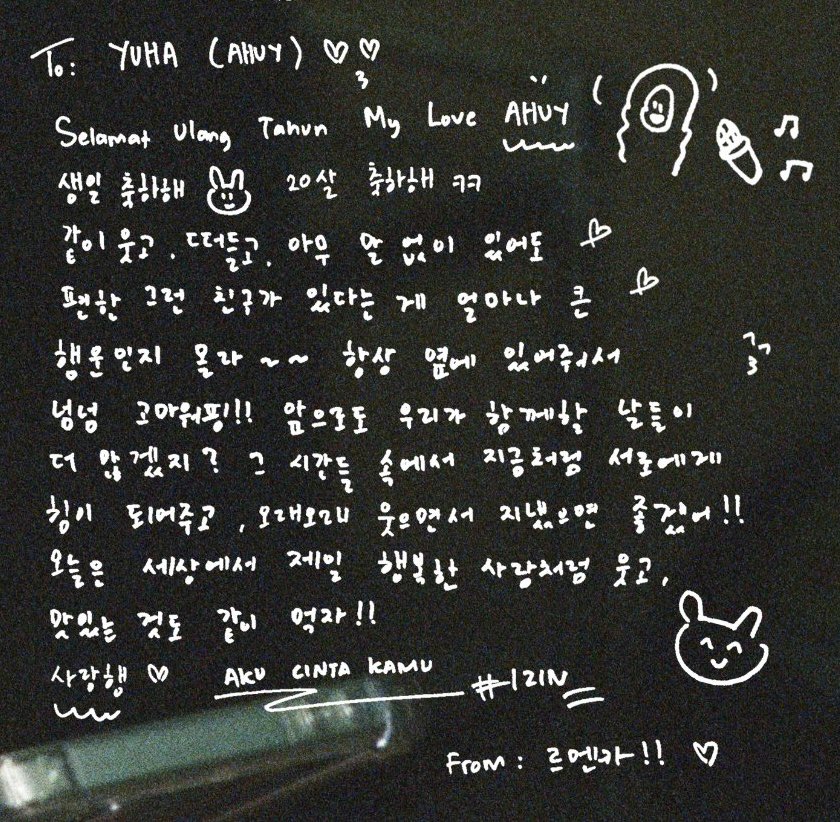 To: YUHA (AHUY) ♡♡
Selamat Ulang Tahun My Love AHUY
생일 축하해 20살 축하해 ㅋㅋ
같이 웃고, 떠들고, 아무 말 없이 있어도
편한 그런 친구가 있다는 게 얼마나 큰
행운인지 몰라 ~~ 항상 옆에 있어줘서
넝넝 고마워핑!! 앞으로도 우리가 함께할 날들이
더 많겠지? 그 시간들 속에서 지금처럼 서로에게
힘이 되어주고, 오래오래 웃으면서 지냈으면 좋겠어!!
오늘은 세상에서 제일 행복한 사람처럼 웃고,
맛있는 것도 같이 먹자!!
사랑행 ♡ AKU CINTA KAMU #IZIN
From: 르멘자!! ♡